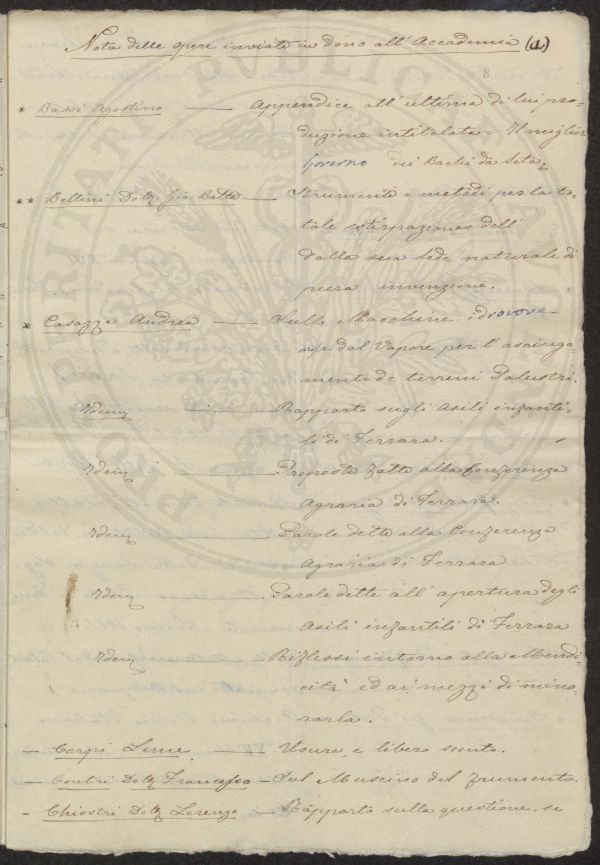 Nota delle opere inviate in dono all'Accademia (a)
8
* Bassi Agostino — Appendice all'ultima di lui pro-
duzione intitolata = Il miglior
Governo dei Bachi da Seta.
** Bellini Dott. Gio. Batta — Strumenti e metodi per la to-
tale estirpazione dell'
dalla sua sede naturale di
pura invenzione.
* Casazza Andrea — Sulle Macchine idrovore
dal Vapore per l'asciuga-
mento de terreni Palustri.
Idem — Rapporto sugli Asili infanti-
li di Ferrara.
Idem — Proposte fatte alla Conferenza
Agraria di Ferrara.
Idem — Parole dette alla Conferenza
Agraria di Ferrara
Idem — Parole dette all'apertura degli
Asili infantili di Ferrara
Idem — Riflessi intorno alla Mendi-
cità ed ai mezzi di mino-
rarla.
— Carpi Leone — Usura e libero sconto.
— Contri Dott. Francesco — Sul Moscino del frumento.
- Chiostri Dott. Lorenzo — Rapporto sulla questione, se